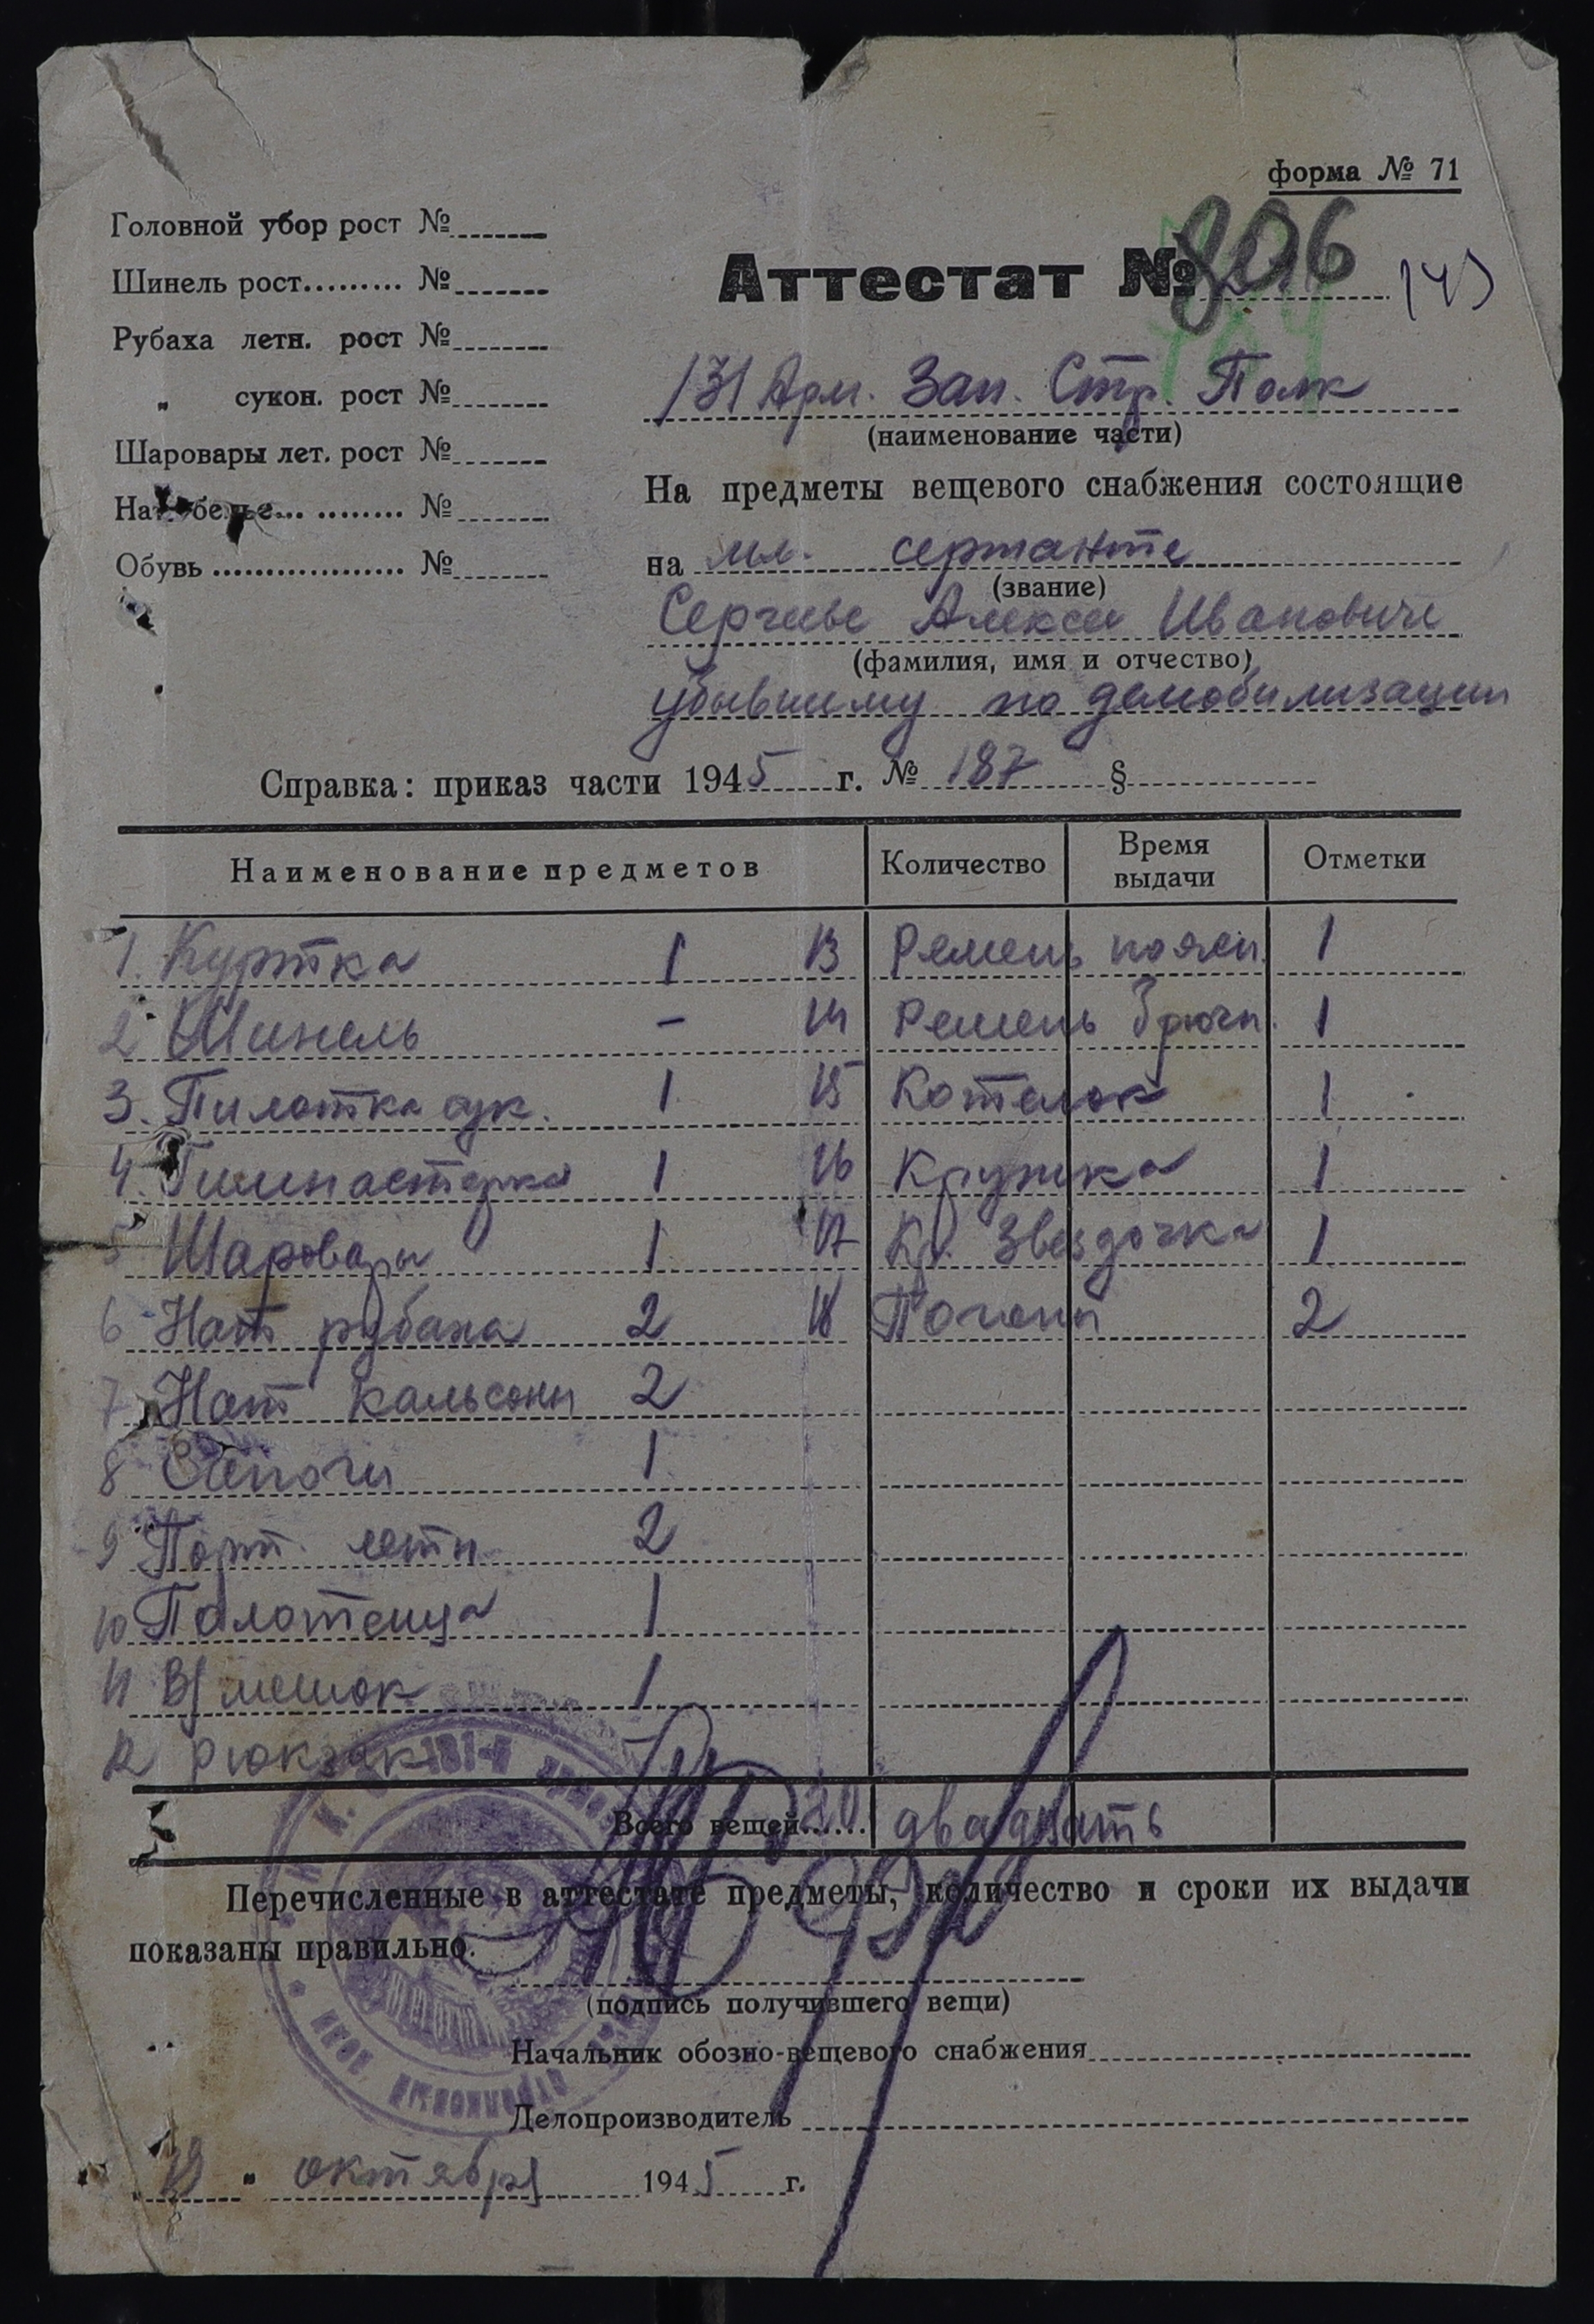 форма № 71
Головной убор рост №
Шинель рост......... №
Рубаха летн. рост №
" сукон. рост №
Шаровары лет. рост №
Нат. белье... ........ №
Обувь .................. №
Аттестат № 806
131 Арм. Зап. Стр. Полк
(наименование части)
На предметы вещевого снабжения состоящие
на мл. сержанте
(звание)
Сергееве Алексеи Ивановиче
(фамилия, имя и отчество)
убывшему по демобилизации
Справка: приказ части 1945 г. № 187 §
Наименование предметов Количество Время выдачи Отметки
1. Куртка 1 13 Ремень поясн. 1
2 Шинель - 14 Ремень брючн. 1
3. Пилотка сук. 1 15 Котелок 1
4. Гимнастерка 1 16 Кружка 1
5 Шаровары 1 17 Кр. Звездочка 1
6 Нат рубаха 2 18 Погоны 2
7 Нат кальсоны 2
8 Сапоги 1
9 Порт. летн. 2
10 Полотенца 1
11 В/мешок 1
12 Рюкзак -
Всего вещей...... 20 двадцать
Перечисленные в аттестате предметы, количество и сроки их выдачи
показаны правильно.
(подпись получившего вещи)
Начальник обозно-вещевого снабжения
Делопроизводитель
" октября 1945 г.